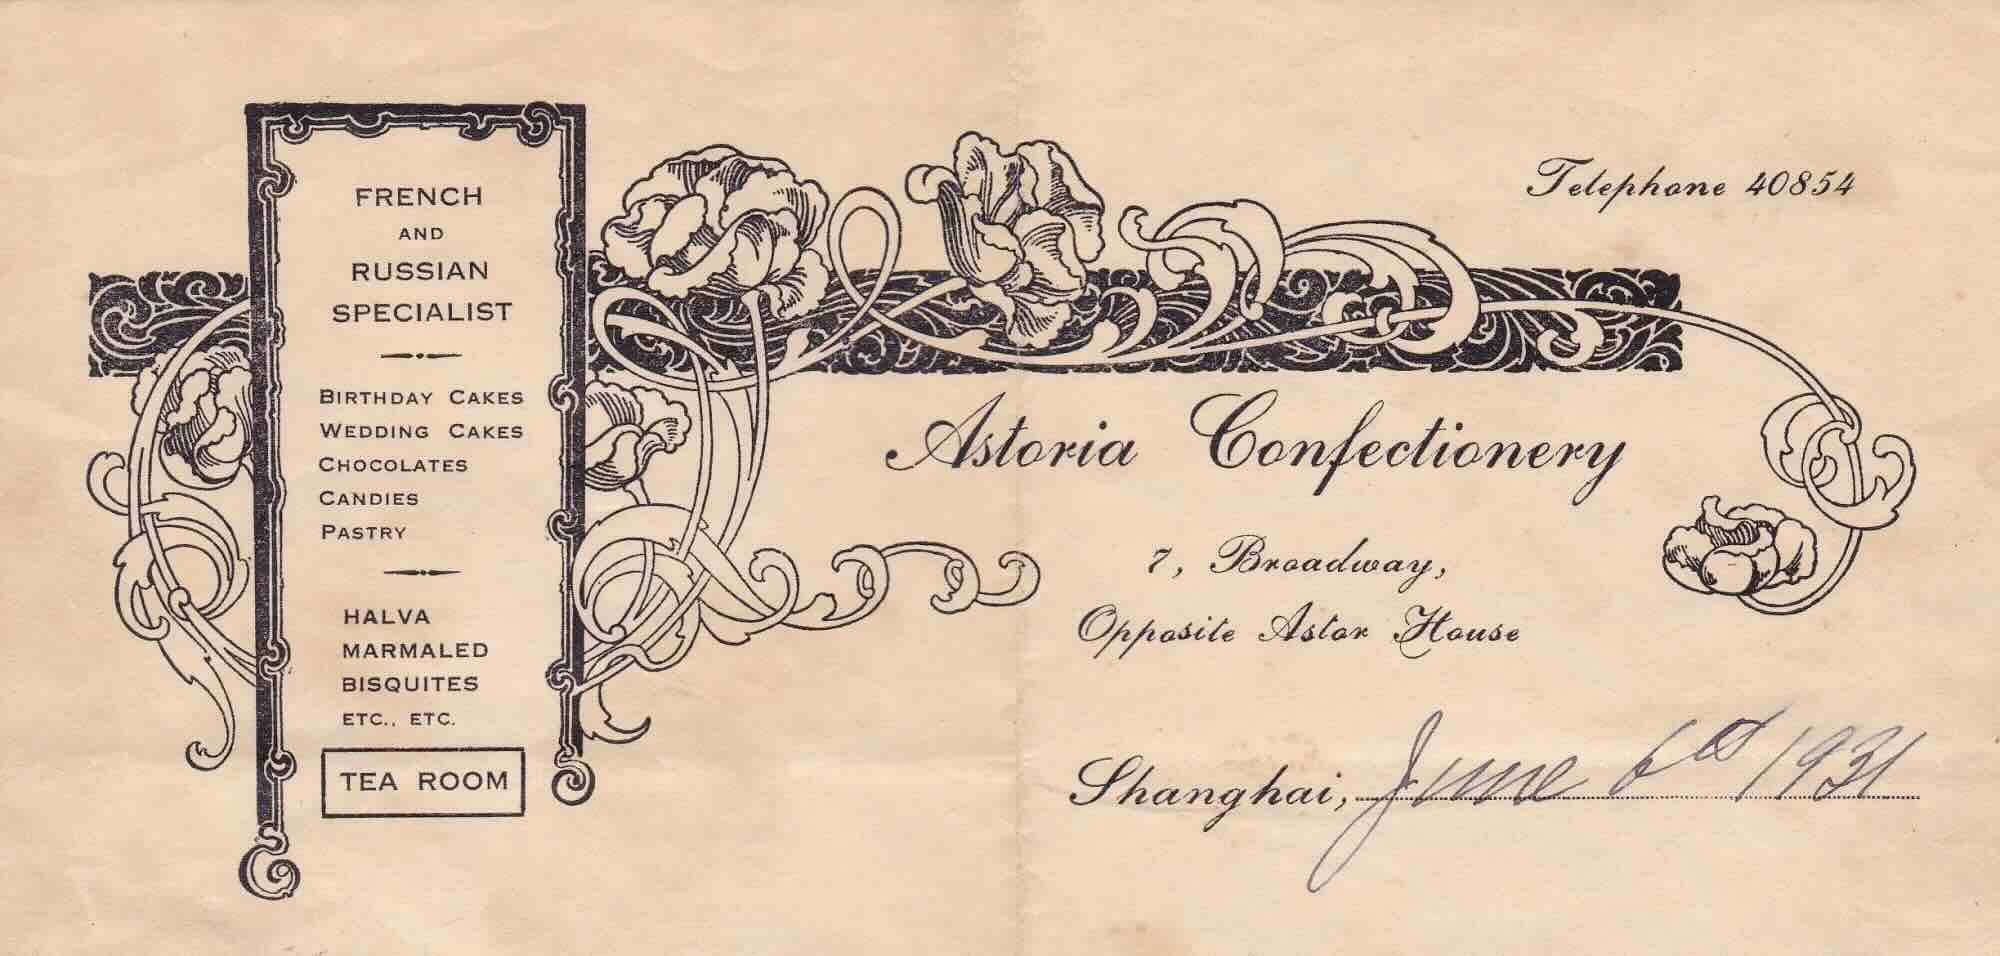 FRENCH
AND
RUSSIAN
SPECIALIST
BIRTHDAY CAKES
WEDDING CAKES
CHOCOLATES
CANDIES
PASTRY
HALVA
MARMALED
BISQUITES
ETC., ETC.
TEA ROOM
Telephone 40854
Astoria Confectionery
7, Broadway,
Opposite Astor House
Shanghai, June 6th 1931